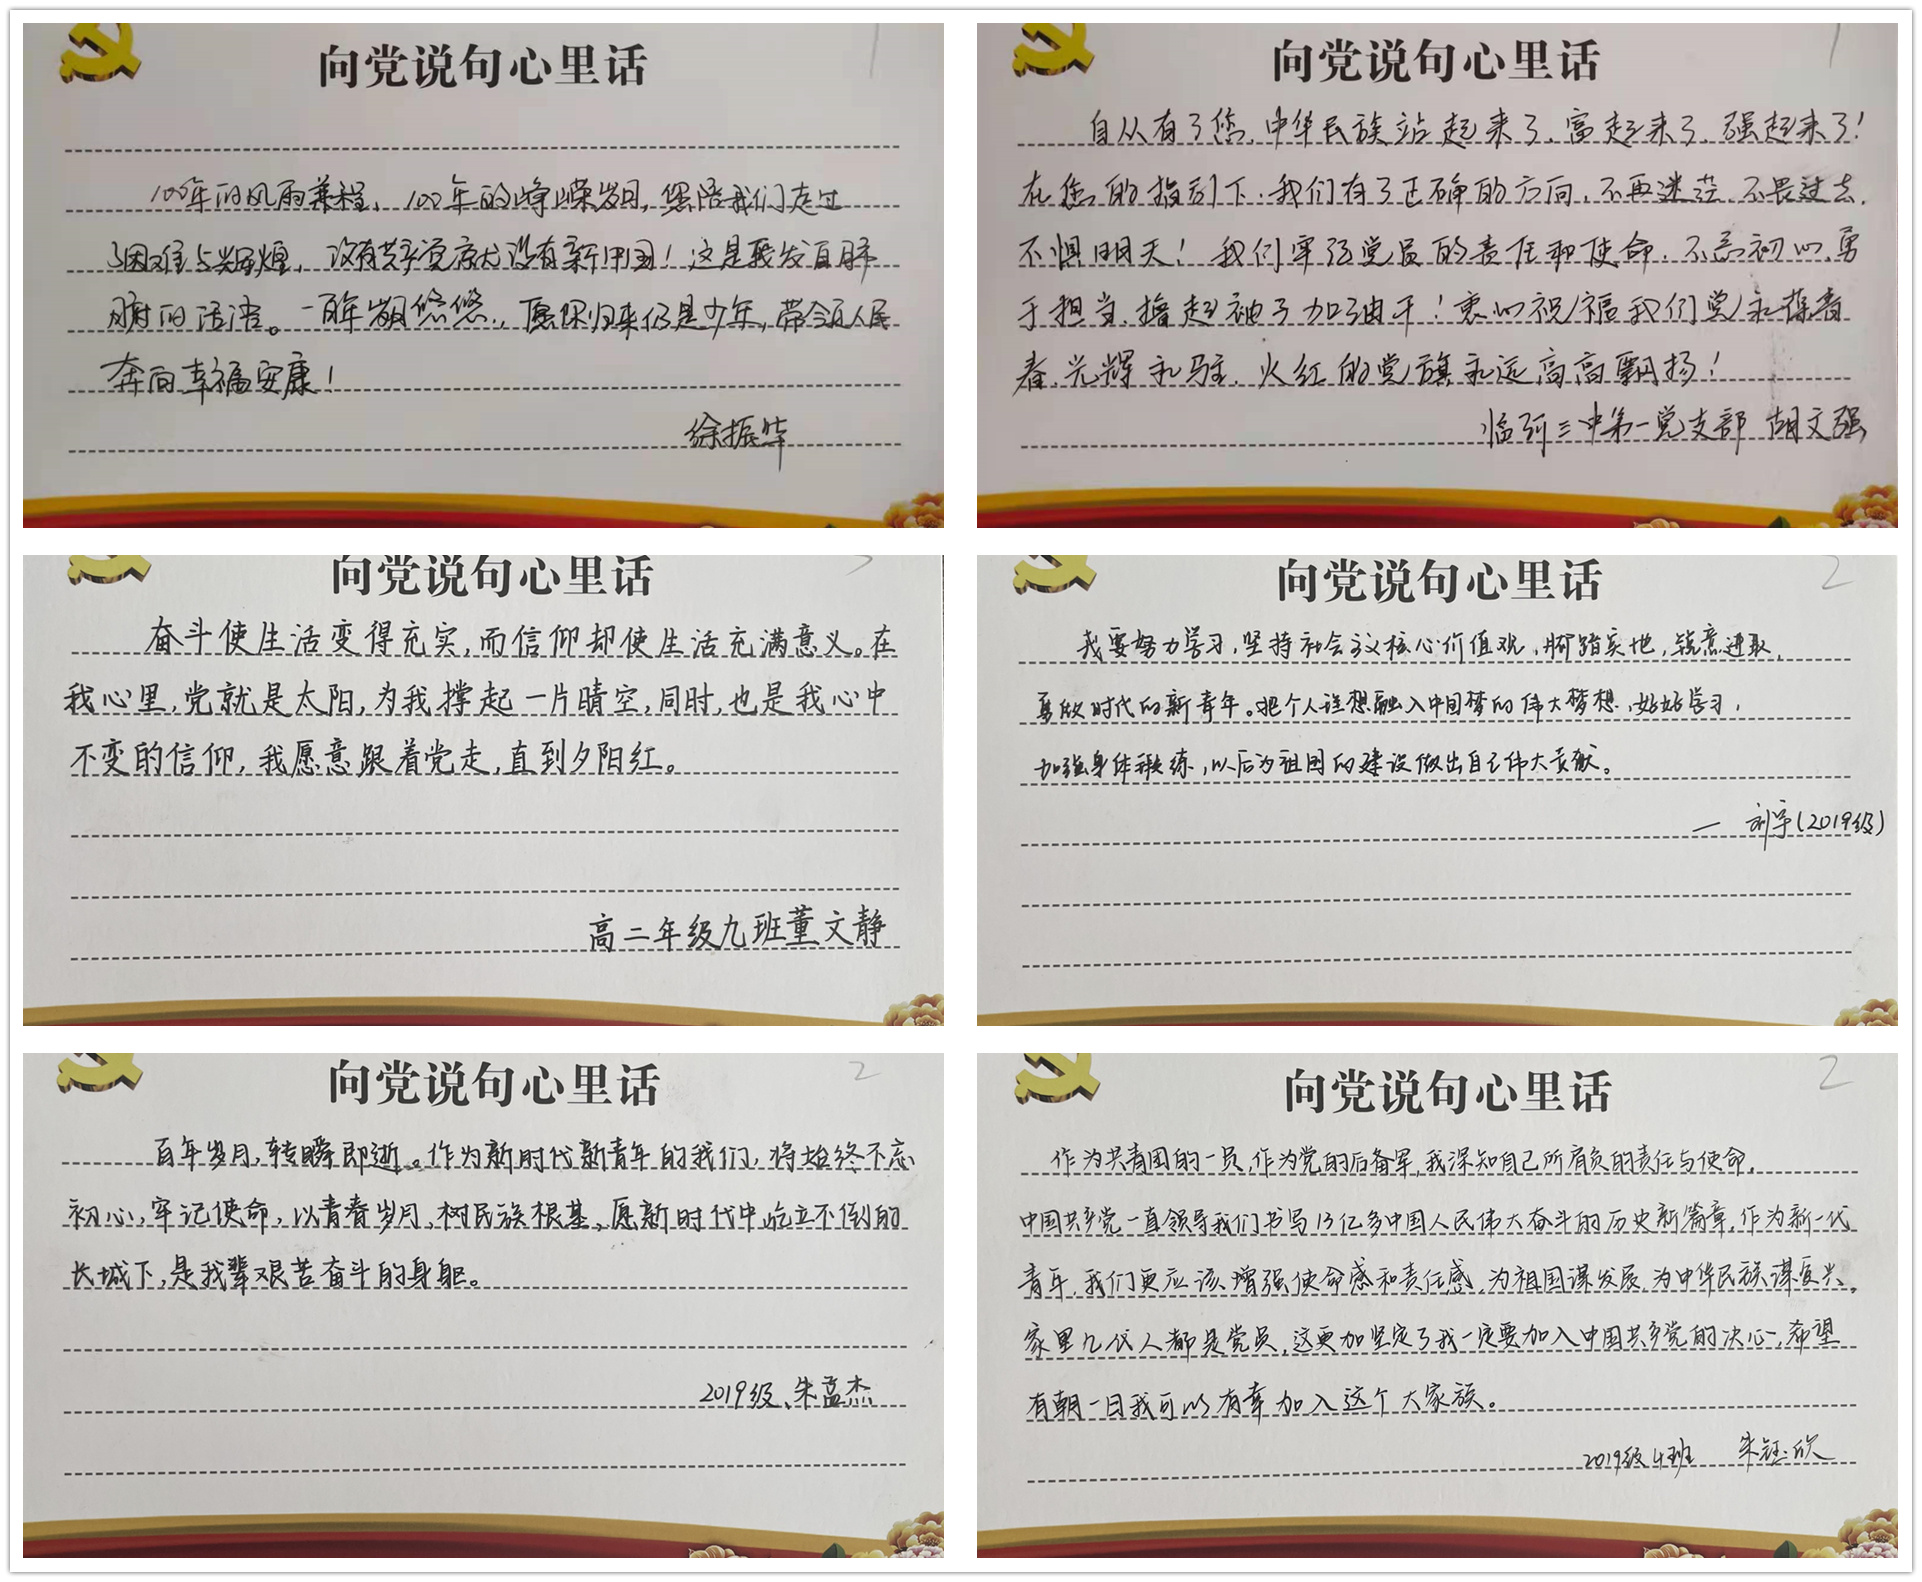 向党说句心里话
1
100年的风雨兼程、100年的峥嵘岁月,您陪我们走过
困难与辉煌,没有共产党就没有新中国!这是我发自肺
腑的话语。一百年岁月悠悠,愿你归来仍是少年,带领人民
奔向幸福安康!
徐振华
向党说句心里话
1
自从有了您,中华民族站起来了、富起来了、强起来了!
在您的指引下:我们有了正确的方向,不再迷茫、不畏过去,
不惧明天!我们牢记党员的责任和使命、不忘初心、勇
于担当、撸起袖子加油干!衷心祝福我们党永葆青
春、光辉永驻、火红的党旗永远高高飘扬!
临河三中第一党支部 胡文强
向党说句心里话
3
奋斗使生活变得充实,而信仰却使生活充满意义。在
我心里,党就是太阳,为我撑起一片晴空,同时,也是我心中
不变的信仰,我愿意跟着党走,直到夕阳红。
高二年级九班董文静
向党说句心里话
2
我要努力学习,坚持社会主义核心价值观,脚踏实地,锐意进取,
勇做时代的新青年。把个人理想融入中国梦的伟大梦想,好好学习,
加强身体锻练,以后为祖国的建设做出自己伟大贡献。
— 刘宇(2019级)
向党说句心里话
2
百年岁月,转瞬即逝。作为新时代新青年的我们,将始终不忘
初心,牢记使命,以青春岁月、树民族根基、愿新时代中屹立不倒的
长城下,是我辈艰苦奋斗的身躯。
2019级、朱孟杰
向党说句心里话
2
作为共青团的一员,作为党的后备军,我深知自己所肩负的责任与使命,
中国共产党一直领导我们书写13亿多中国人民伟大奋斗的历史新篇章,作为新一代
青年,我们更应该增强使命感和责任感,为祖国谋发展,为中华民族谋复兴,
家里几代人都是党员,这更加坚定了我一定要加入中国共产党的决心,希望
有朝一日我可以有幸加入这个大家族。
2019级4班 朱钰欣